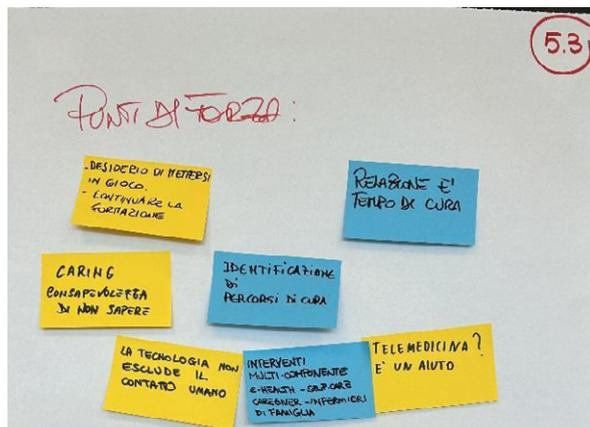 5.3
PUNTI DI FORZA:
-DESIDERIO DI METTERSI
IN GIOCO.
- CONTINUARE LA
FORMAZIONE
RELAZIONE E'
TEMPO DI CURA
CARING
CONSAPEVOLEZZA
DI NON SAPERE
IDENTIFICAZIONE
DI
PERCORSI DI CURA
LA TECNOLOGIA NON
ESCLUDE IL
CONTATTO UMANO
INTERVENTI
MULTI-COMPONENTE
E-HEALTH - SELF-CARE
CAREGIVER - INFERMIERI
DI FAMIGLIA
TELEMEDICINA?
E' UN AIUTO